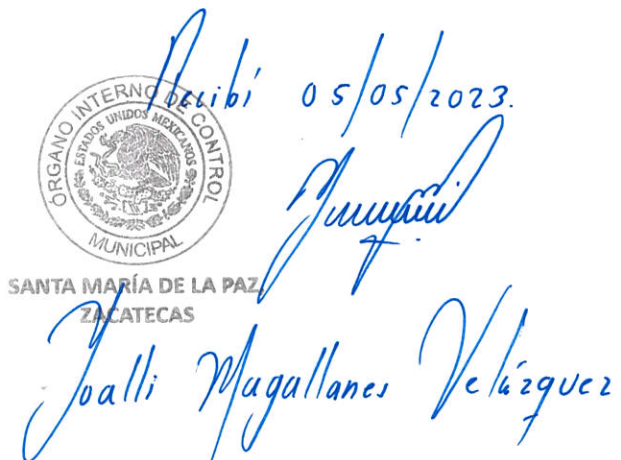 Recibí 05/05/2023.
ÓRGANO INTERNO DE CONTROL
ESTADOS UNIDOS MEXICANOS
MUNICIPAL
SANTA MARÍA DE LA PAZ,
ZACATECAS
Yoalli Magallanes Velázquez